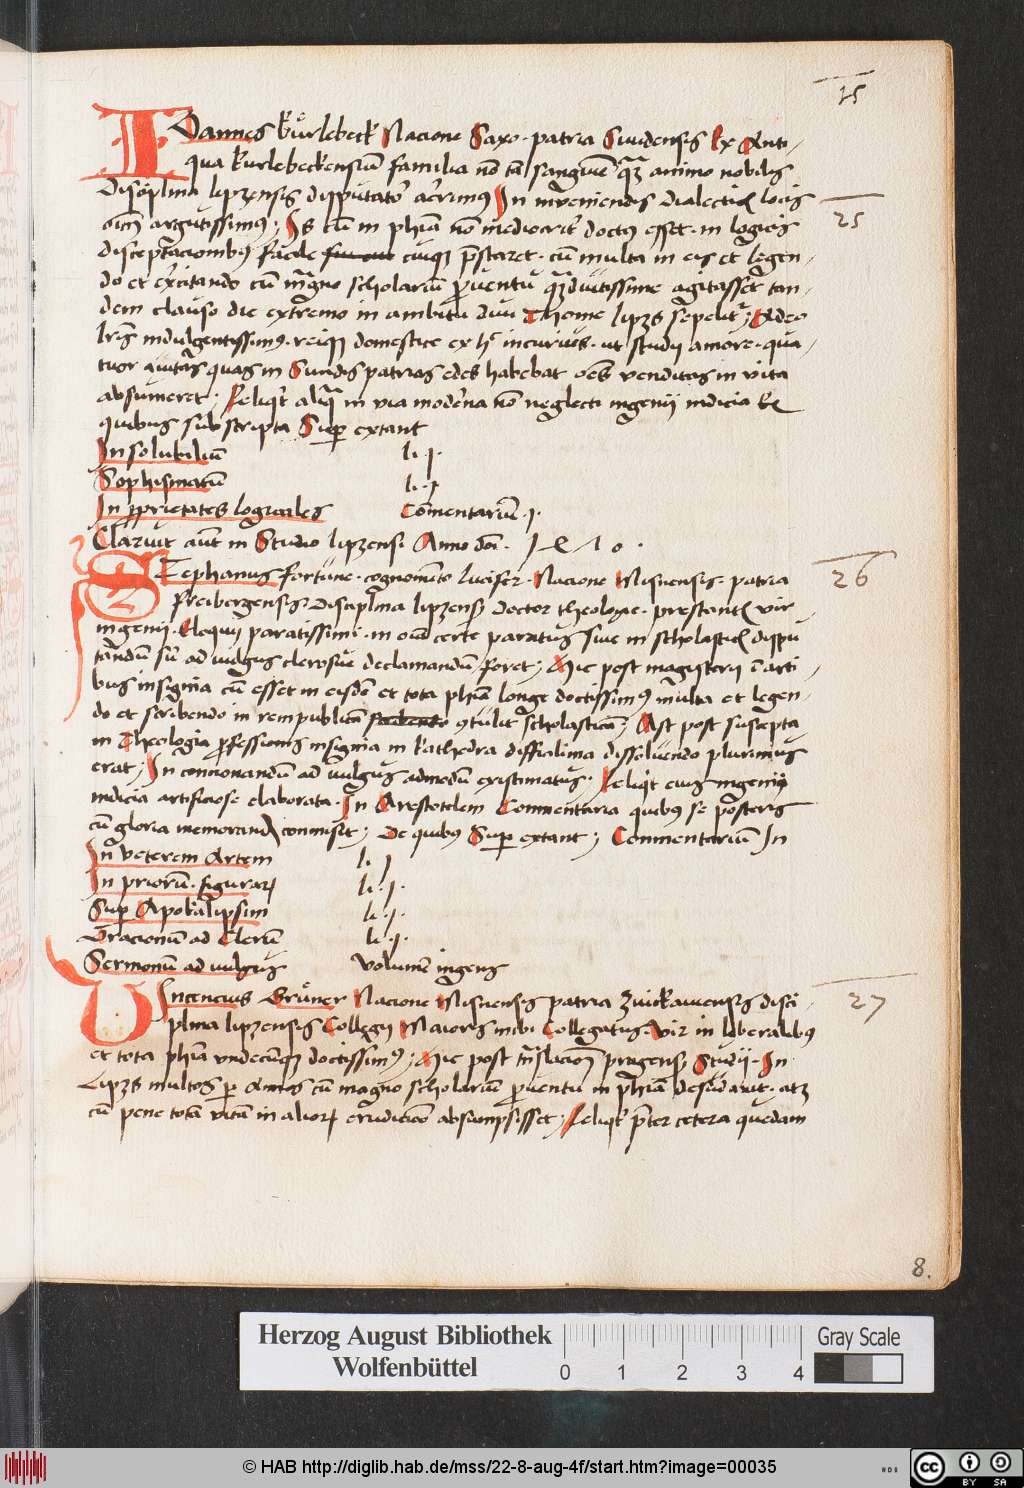 15
Ioannes kurlebeck Nacione Saxo. patria Sundensis Ex Anti-
qua kurlebeckensiu familia no ta sanguie qua animo nobilis
Disciplina lipzensis disputator acrimus In inveniendis dialectic locis
25
argutissimus; Is cu in phia no mediocrit doctus esset. in logicis
disceptacionibus facile cuiqz prestaret. cu multa in eis et legen-
do et excitando cu magno scholariu proventu qua diutissime agitasset tan-
dem clauso die extremo in ambitu divi Thome lipzs sepelit; Adeo
indulgentissimus. reiqz domestice incurius. ut studij amore. qua-
tuor quas in Sundis patrias edes habebat venditas in vita
absumeret; Reliqt aliqua in via moderna no neglecti ingenij indicia Ex
quibus subscripta Super extant
Insolubiliu li. j.
Sophismatu li. j
In proprietates logicales Comentariu. j.
Claruit aut in Studio lipzensi Anno doi. 1 4 1 0.
26
Stephanus fortune. cognomento lucifer. Nacione Misnensis. patria
freibergensis Disciplina lipzens doctor theologie. prestantis vir
ingenij. Eloquij paratissimi. in certe paratus sive in scholastic dispu
tandum ad vulgus clerosue declamandu foret; Hic post magisterij i arti-
bus insignia cu esset in eisdem et tota phia longe doctissimus multa et legen-
do et scribendo in rempublica otulit scholastica; Ast post suscepta
in Theologia professionis insignia in kathedra difficilima dissoluendo plurimus
erat; In concionandu ad vulgus admodu existimatus; Reliqt eius ingenij
indicia artificiose elaborata. In Arestotelem Commentaria quibus se posteris
cu gloria memorand commisit; De quibus Super extant; Commentariu In
In veterem Artem l. j
In prioru. figurar li. j.
Sup Apokalipsim li. j.
Oracionu ad Cleru li. j.
Sermonu ad vulgus Volumen ingens
27
Vincencius Gruner Nacione Misnensis patria Zwickawensis disci-
plina lipzensis Collegij Maioris inibi Collegatus. Vir in liberalibus
et tota phia undecunqz doctissimus; Hic post translacione pragens Studij. In
Lipzs multos per annos cu magno scholariu proventu in phia desudavit. atz
cu pene tota vita in alior erudicione absumpsisset; Reliqt preter cetera quedam
8.
Herzog August Bibliothek
Wolfenbüttel
0 1 2 3 4
Gray Scale
© HAB http://diglib.hab.de/mss/22-8-aug-4f/start.htm?image=00035
HAB
cc BY SA